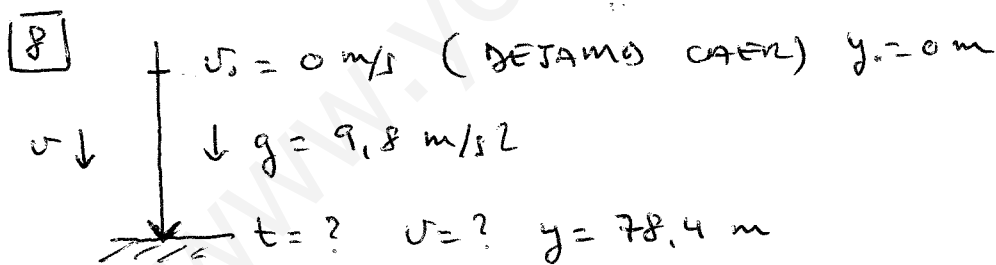 8 v₀ = 0 m/s (DEJAMOS CAER) y₀ = 0 m
v ↓ ↓ g = 9,8 m/s2
t = ? v = ? y = 78,4 m